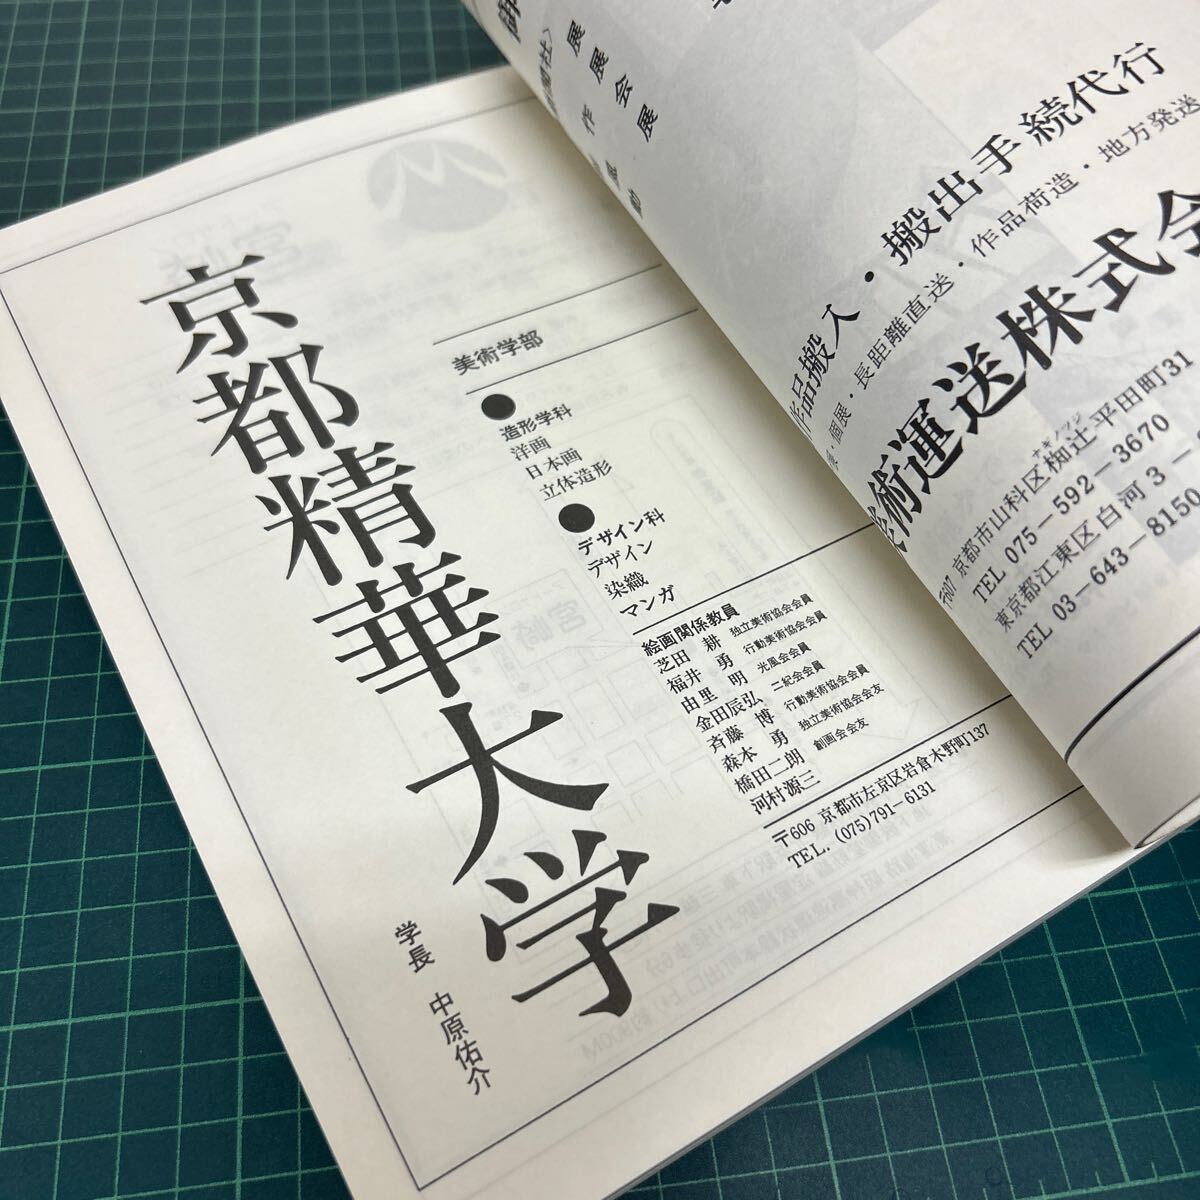 京都精華大学
学長 中原佑介
美術学部
●
造形学科
洋画
日本画
立体造形
●
デザイン科
デザイン
染織
マンガ
絵画関係教員
芝田 耕 独立美術協会会員
福井 勇 行動美術協会会員
由里 明 光風会会員
金田辰弘 二紀会会員
斉藤 博 行動美術協会会員
森本 勇 独立美術協会会友
橋田二朗 創画会会友
河村源三
〒606 京都市左京区岩倉木野町137
TEL. (075)791-6131
展
展
会
展
作品搬入・搬出手続代行
個展・長距離直送・作品荷造・地方発送
術運送株式会
〒607 京都市山科区椥辻平田町31
TEL 075-592-3670
東京都江東区白河3-
TEL 03-643-8150